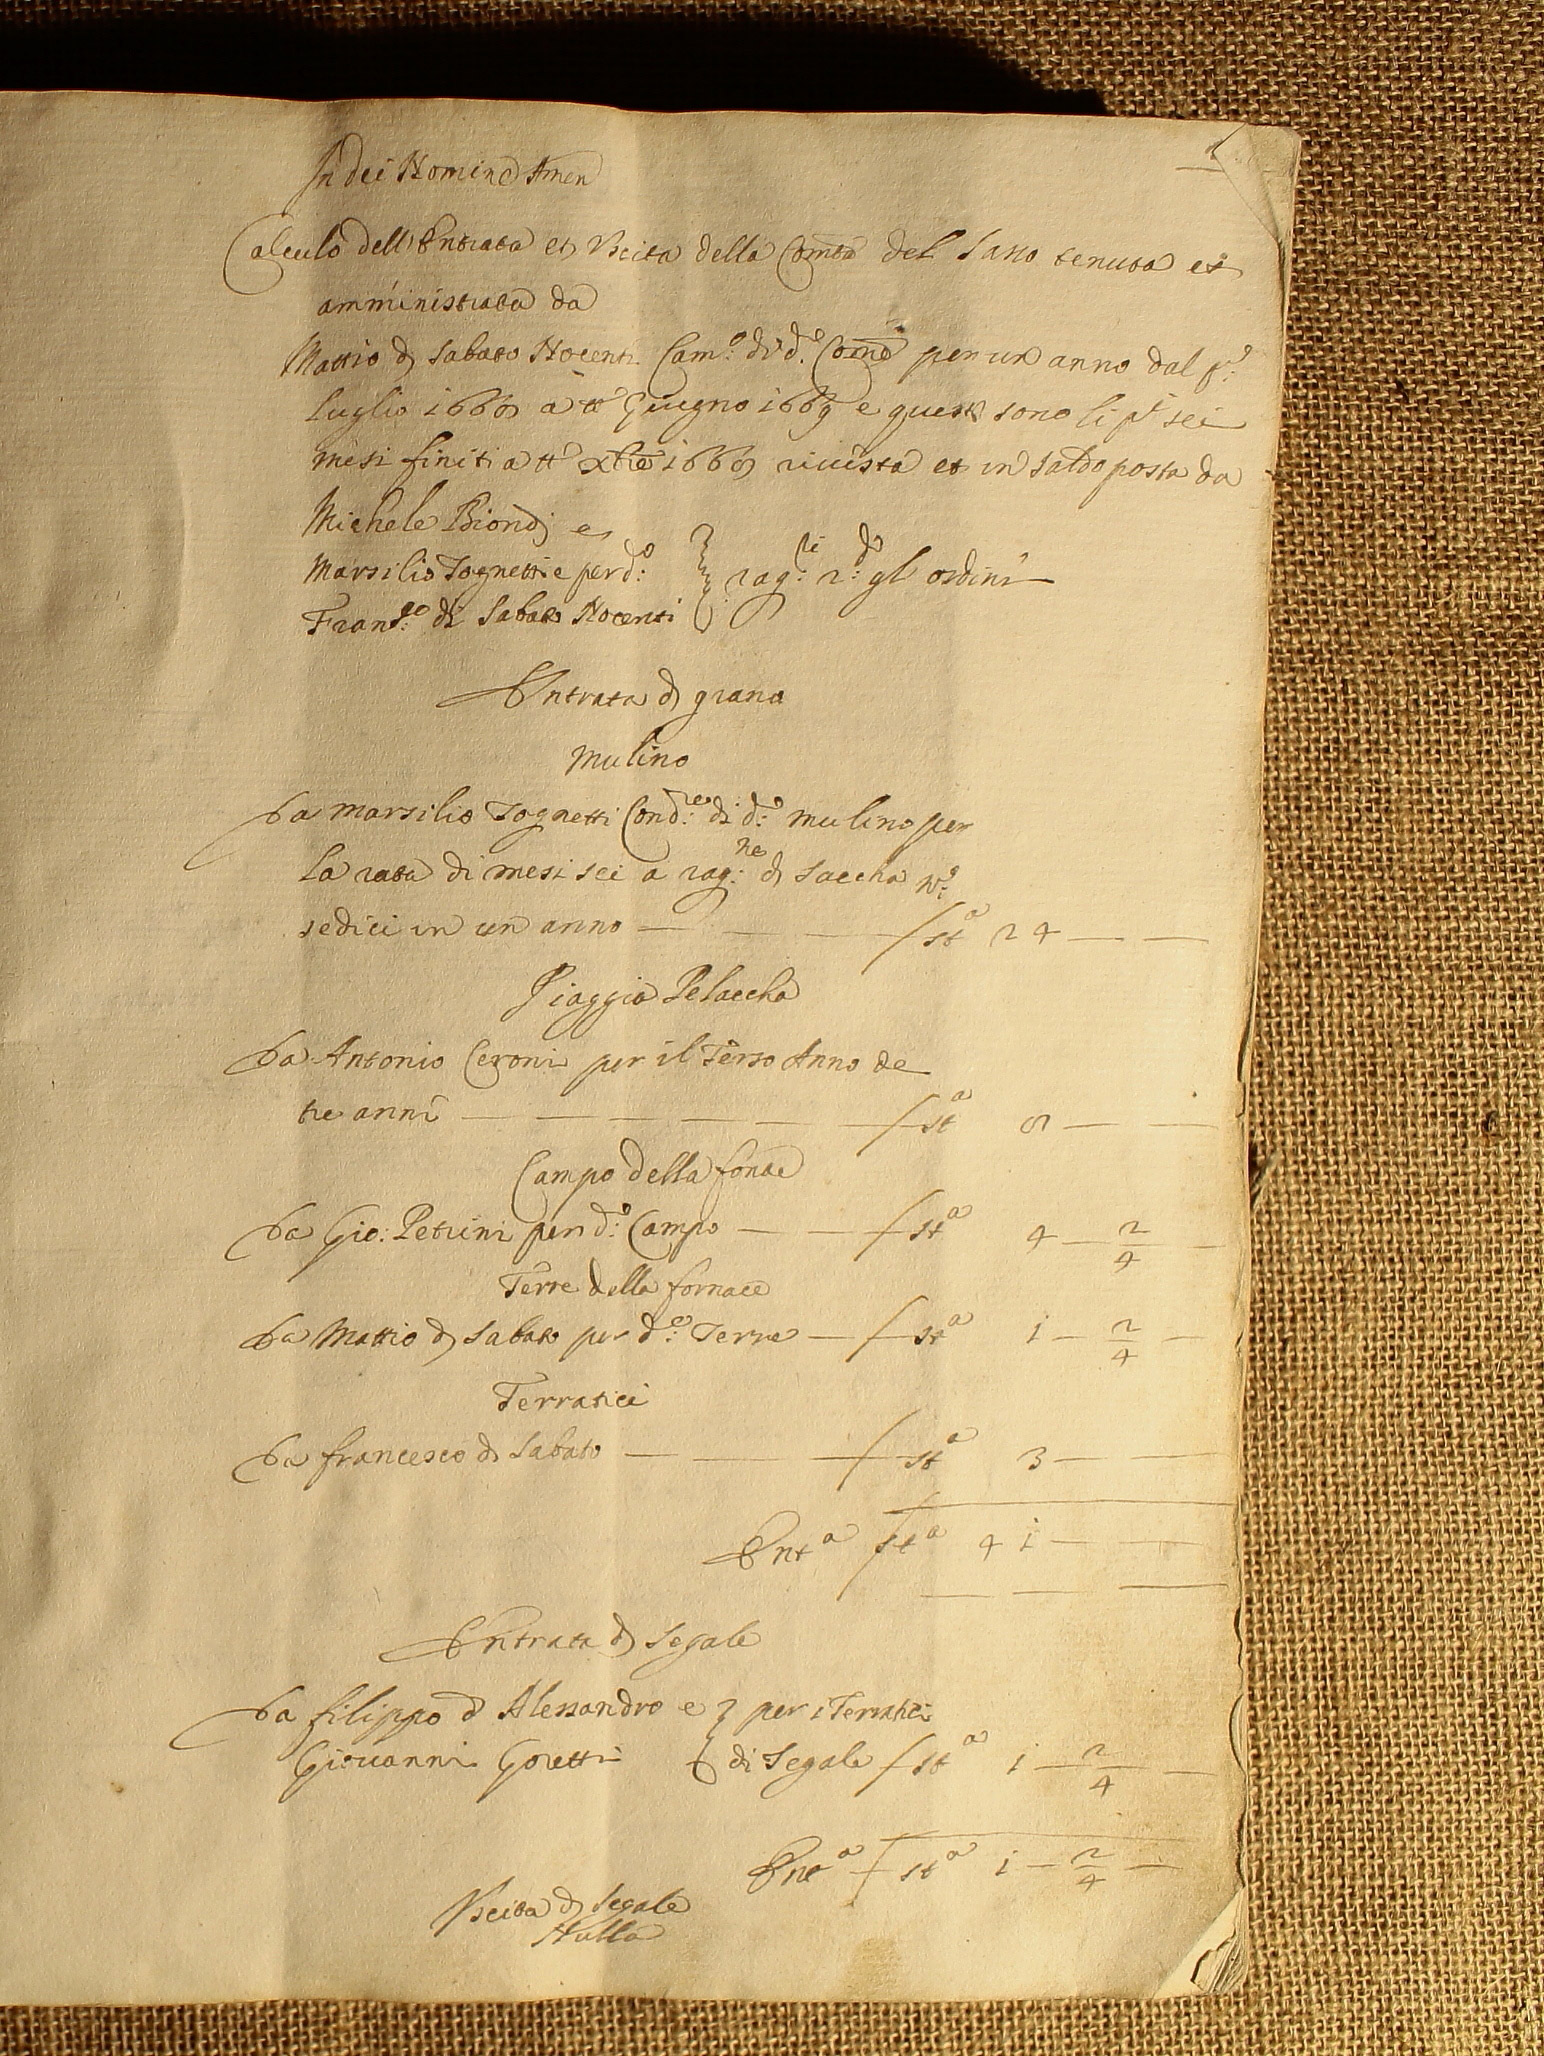 1
In dei Nomine Amen
Calculo dell'Entrata et Vscita della Comta del Sasso tenuta et
amministrata da
Mattio di Sabato Nocenti Camo: di do: Come per un anno dal po:
luglio 1668 a tto Giugno 1669 e questi sono li pi sei
mesi finiti a tto xbre 1668 riuista et in saldo posta da
Michele Biondi e
Marsilio Tognetti e per do: ragri: rdo: gl'ordini
Franco: di Sabato Nocenti
Entrata di grano
Mulino
Da Marsilio Tognetti Condre: di do: mulino per
la rata di mesi sei a ragne: di sacca no:
sedici in un anno — — — sta 24 — —
Piaggia Pelaccha
Da Antonio Ceroni per il Terso Anno de
tre anni — — — — — — sta 8 — —
Campo della fonte
Da Gio: Petrini per do: Campo — — sta 4 — 2/4 —
Terre della fornace
Da Mattio di Sabato per de: Terre — sta 1 — 2/4 —
Terratici
Da francesco di Sabato — — — sta 3 — —
Enta sta 41 — —
Entrata di Segale
Da filippo d'Alessandro e per i Terratici
Giouanni Goretti di Segale sta 1 — 2/4 —
Enta — sta 1 — 2/4 —
Vscita di Segale
Nulla